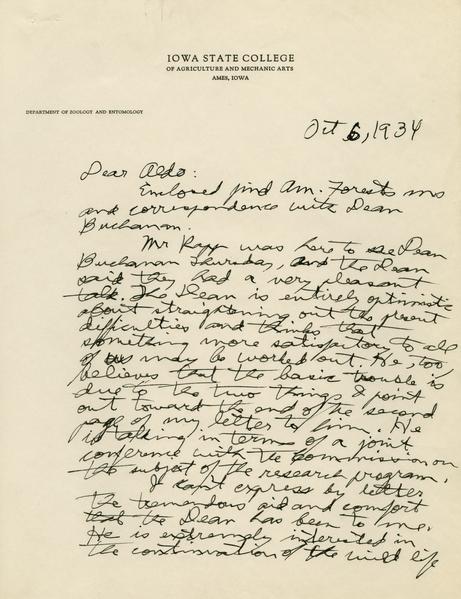 IOWA STATE COLLEGE
OF AGRICULTURE AND MECHANIC ARTS
AMES, IOWA
DEPARTMENT OF ZOOLOGY AND ENTOMOLOGY
Oct 6, 1934
Dear Aldo:
Enclosed find Am. Forests ms
and correspondence with Dean
Buchanan.
Mr Rapp was here to see Dean
Buchanan Thursday, and the Dean
said they had a very pleasant
talk. The Dean is entirely optimistic
about straightening out the present
difficulties and thinks that
something more satisfactory to all
of us may be worked out. He, too,
believes that the basic trouble is
due to the two things I point
out toward the end of the second
page of my letter to him. He
is talking in terms of a joint
conference with the Commission on
the subject of the research program.
I can't express by letter
the tremendous aid and comfort
that the Dean has been to me.
He is extremely interested in
the continuation of the wild life